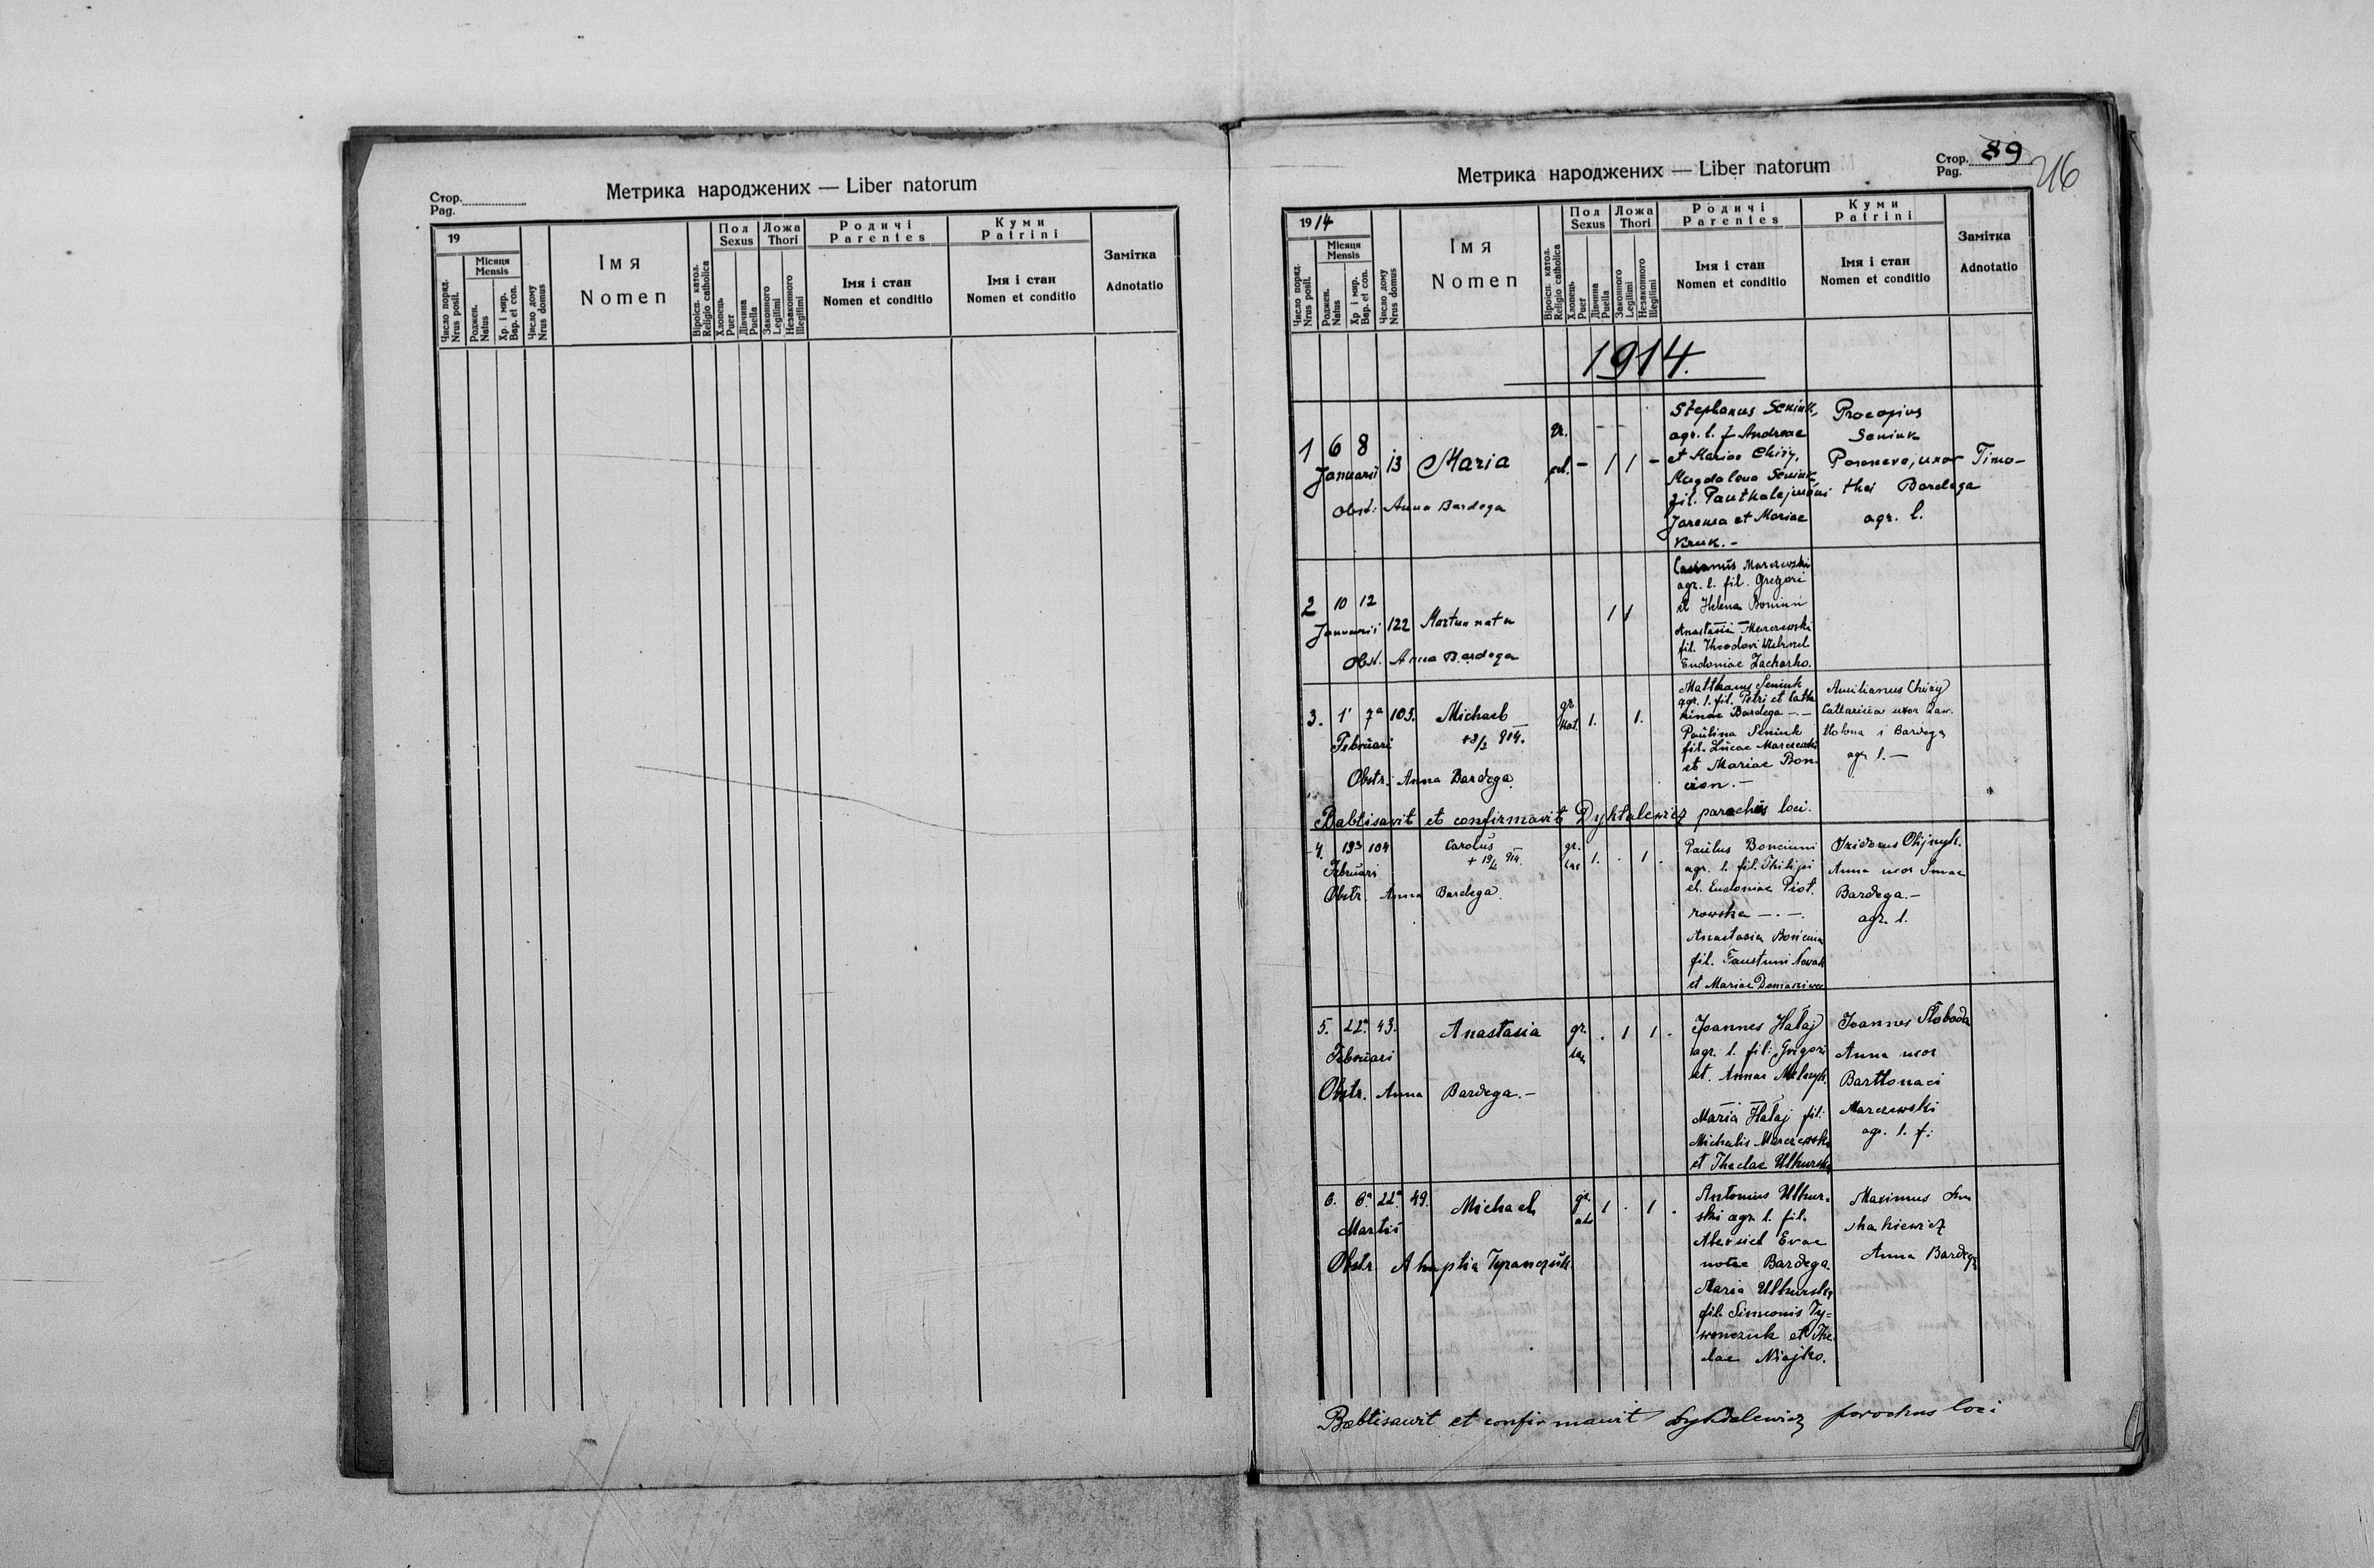 Стор.
Pag.
Метрика народжених — Liber natorum
19
Число поряд.
Nrus posit.
Місяця
Mensis
Роджен.
Natus
Хр. і мир.
Bap. et con.
Число дому
Nrus domus
Імя
Nomen
Віроісп. катол.
Religio catholica
Пол
Sexus
Хлопець
Puer
Дівчина
Puella
Ложа
Thori
Законного
Legitimi
Незаконного
Illegitimi
Родичі
Parentes
Імя і стан
Nomen et conditio
Куми
Patrini
Імя і стан
Nomen et conditio
Замітка
Adnotatio
Метрика народжених — Liber natorum
Стор. 89
Pag.
216
1914
Число поряд.
Nrus posit.
Місяця
Mensis
Роджен.
Natus
Хр. і мир.
Bap. et con.
Число дому
Nrus domus
Імя
Nomen
Віроісп. катол.
Religio catholica
Пол
Sexus
Хлопець
Puer
Дівчина
Puella
Ложа
Thori
Законного
Legitimi
Незаконного
Illegitimi
Родичі
Parentes
Імя і стан
Nomen et conditio
Куми
Patrini
Імя і стан
Nomen et conditio
Замітка
Adnotatio
1914.
1 6 8 13 Maria
Januarii
Obst: Anna Bardega
- 1 1 -
Stephanus Seniuk,
agr. l. f. Andreae
et Mariae Chiży,
Magdalena Seniuk
fil.
Jarema et Mariae
Kruk. -
Procopius
Seniuk
uxor Timo-
thei Bardega
agr. l.
2 10 12 122 Mortua nata
Januarii
Obst. Anna Bardega
1 1
Marczewski
agr. l. fil. Gregori
et Helena
Anastasia Marczewski
fil. Theodori
Eudoniae Zacharko.
3. 1 7a 103. Michael
+8/2 914.
Februari
Obstr. Anna Bardega
gr.
kat. 1. 1.
Matthaeus Seniuk
agr. l. fil. Petri et Catha
rinae Bardega -.-
Paulina Seniuk
fil. Lucae Marczewski
et Mariae Bon-
Chiży
Cattarina uxor
i Bardega
agr l. -
Babtisavit et confirmavit Dyktalewicz parochus loci.
4. 19a 104 Carolus
+ 19/2 914.
Februari
Obstr. Anna Bardega.
gr. 1. . 1 .
Paulus Bonciuni
agr. l. fil. Philipi
et. Eudoniae Piot.
rowska -.-.
Anastasia
fil. Faustini Nowak
et Mariae
Izidorus Olijnyk.
Anna uxor
Bardega.-
agr. l.
5. 22a 43. Anastasia
Februari
Obstr. Anna Bardega.-
gr. . 1 1 .
Joannes Hałaj
agr. l. fil: Grigori
et. Annae Melnyk.
Maria Hałaj fil:
Michaelis Marczewski
et Theclae
Joannes Słoboda
Anna uxor
Marczewski
agr. l. f:
6. 6a 22a 49. Michael
Martii
Obstr.
gr. 1 . 1 .
Antonius
ski agr. l. fil.
Evae
notae Bardega.
Maria
fil. Simeonis Ty=
wonczuk et The.
clae
Maximus
Anna Bardega
Babtisavit et confirmavit Dyktalewicz parochus loci